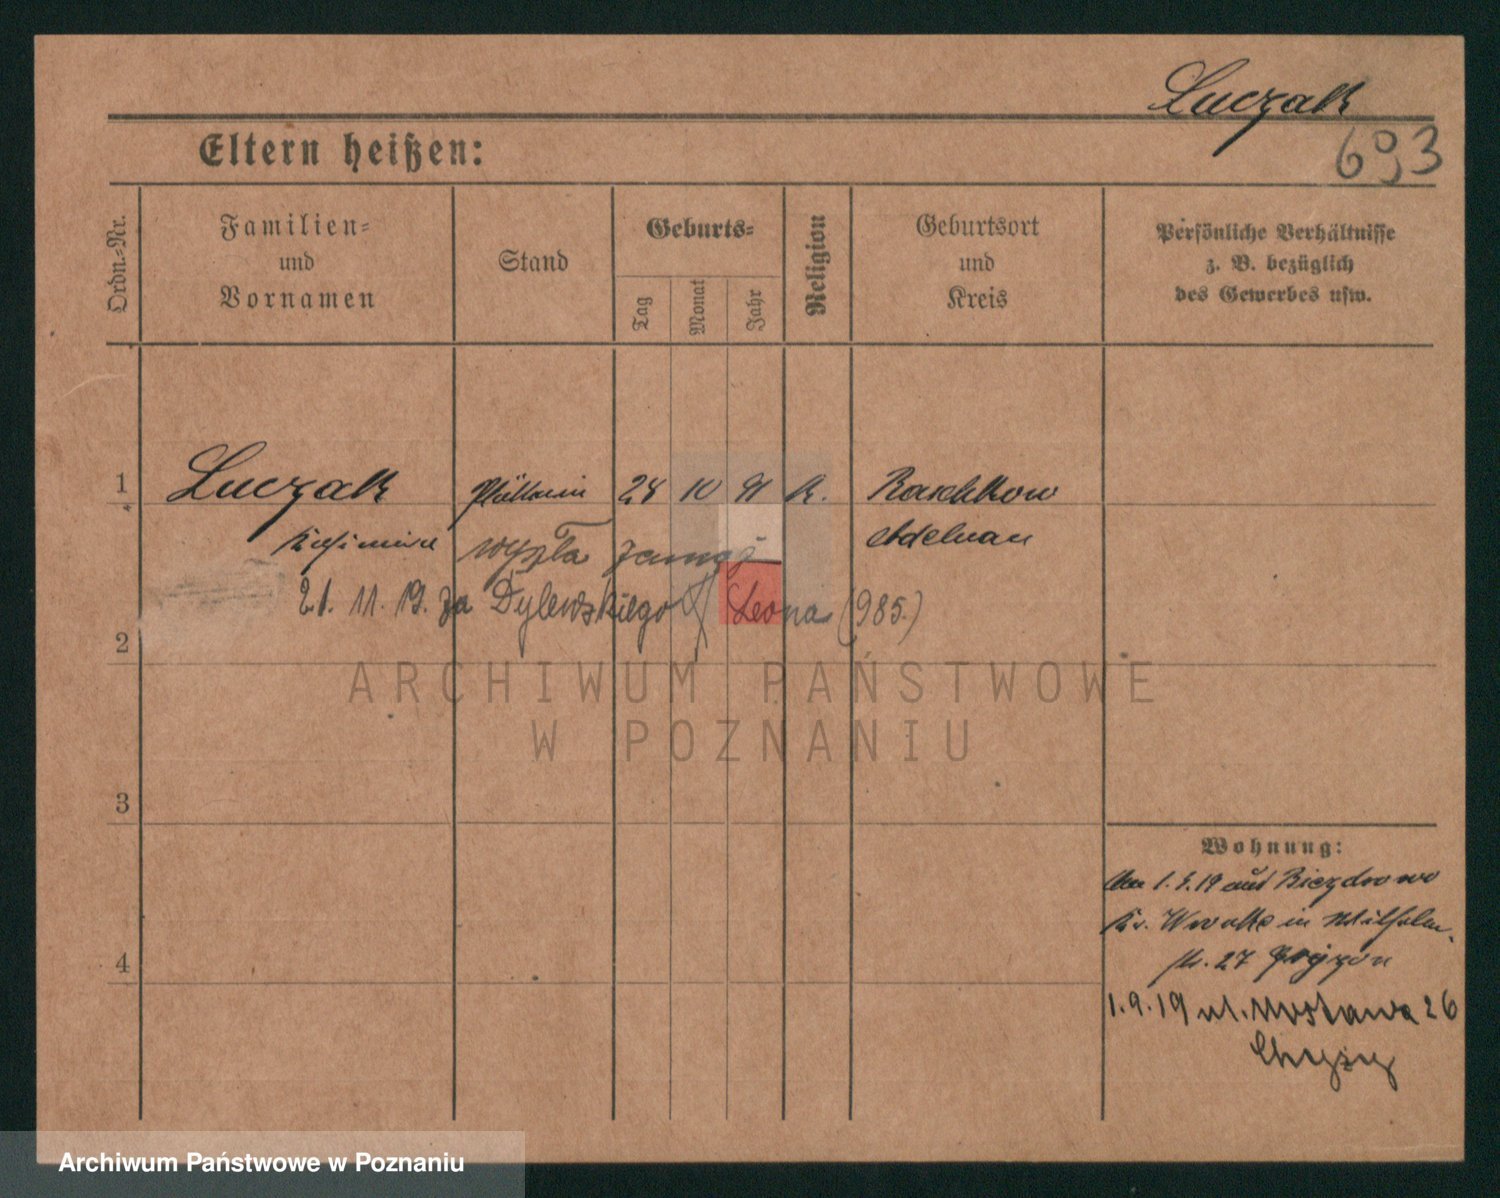 Luczak
693
Eltern heißen:
Ordn.-Nr.
Familien-
und
Vornamen
Stand
Geburts-
Tag
Monat
Jahr
Religion
Geburtsort
und
Kreis
Persönliche Verhältnisse
z. B. bezüglich
des Gewerbes usw.
1 Luczak 10 91 K. Raschkow
Kasimira wyszła zamąż Adelnau
21. 11. 19. za Dylewskiego Leona (985.)
2
ARCHIWUM PAŃSTWOWE
W POZNANIU
3
Wohnung:
1. 19 aus Biezdrowo
Kr. in Wilhelm-
str. 27
4
1. 9. 19 ul. Mostowa 26
Archiwum Państwowe w Poznaniu